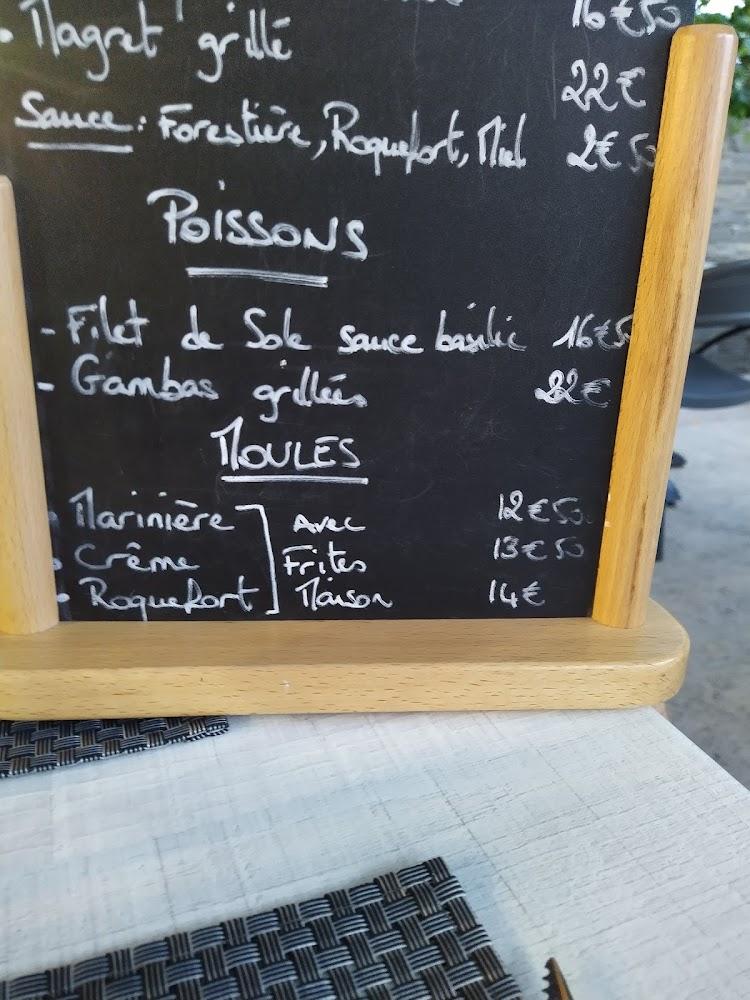 16€50
• Magret grillé 22€
Sauce : Forestière, Roquefort, Miel 2€50
POISSONS
- Filet de Sole sauce basilic 16€5
- Gambas grillées 22€
MOULES
• Marinière Avec 12€50
• Crême Frites 13€50
• Roquefort Maison 14€